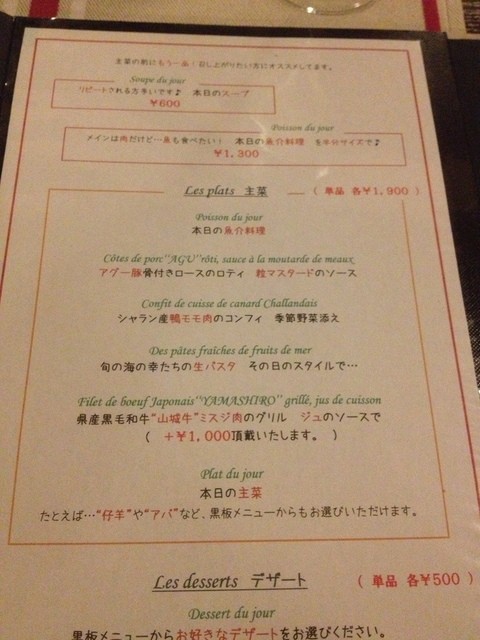 主菜の前にもう一品！召し上がりたい方にオススメしてます。
Soupe du jour
リピートされる方多いです♪ 本日のスープ
￥600
Poisson du jour
メインは肉だけど…魚も食べたい！ 本日の魚介料理 を半分サイズで♪
￥1,300
Les plats 主菜 ( 単品 各￥1,900 )
Poisson du jour
本日の魚介料理
Côtes de porc"AGU"rôti, sauce à la moutarde de meaux
アグー豚骨付きロースのロティ 粒マスタードのソース
Confit de cuisse de canard Challandais
シャラン産鴨モモ肉のコンフィ 季節野菜添え
Des pâtes fraîches de fruits de mer
旬の海の幸たちの生パスタ その日のスタイルで…
Filet de boeuf Japonais"YAMASHIRO" grillé, jus de cuisson
県産黒毛和牛"山城牛"ミスジ肉のグリル ジュのソースで
( +￥1,000頂戴いたします。 )
Plat du jour
本日の主菜
たとえば…"仔羊"や"アバ"など、黒板メニューからもお選びいただけます。
Les desserts デザート ( 単品 各￥500 )
Dessert du jour
黒板メニューからお好きなデザートをお選びください。